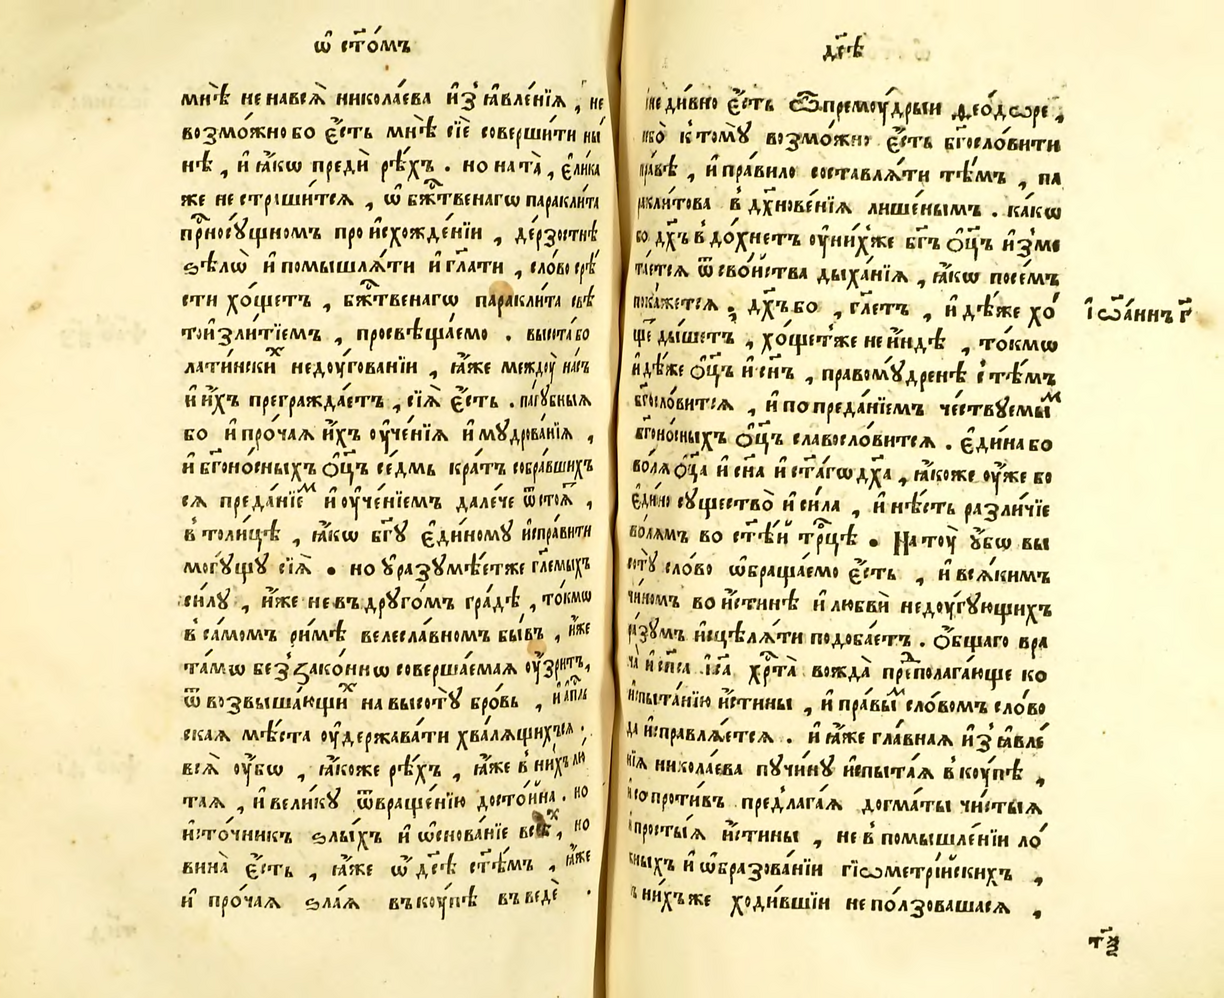 ѡ҆ ст҃о́мъ
мнѣ̀ не на всѧ̀ никола́ева и҆з̾ ꙗ҆вле́нїѧ , не
возмо́жно бо є҆́сть мнѣ̀ сїѐ соверши́ти ны́
нѣ , и҆ ꙗ҆́кѡ предѝ рѣ́хъ . но на та̀ , є҆ли́ка
же не стрꙋши́тсѧ , ѡ҆ бж҃твенагѡ паракли́та
при҇носꙋ́щномъ происхожде́нїи , де́рзостнѣ
ѕѣлѡ̀ и҆ помышлѧ́ти и҆ гл҃ати , сло́во срѣ́
сти хо́щетъ , бж҃твенагѡ паракли́та свѣ
тоизли́тїемъ , просвѣща́емо . высота бо
лати́нскиⷯ недꙋ́гованїи , ꙗ҆́же междꙋ̀ на́съ
и҆ и҆́хъ преграждае́тъ , сїѧ̀ є҆́сть . па́гꙋбныѧ
бо и҆ про́чаѧ и҆́хъ ᲂу҆че́нїѧ и҆ мꙋдрова́нїѧ ,
и҆ бг҃оно́сныхъ ѻ҆ц҃ъ се́дмь кра́тъ собра́вшихъ
сѧ преда́нїеⷨ и҆ ᲂу҆че́нїемъ дале́че ѿстоѧ̀ ,
в̾ толи́цѣ , ꙗ҆́кѡ бг҃ꙋ є҆ди́номꙋ и҆спра́вити
могꙋ́щꙋ сїѧ̀ . но ᲂу҆разꙋмѣ́етже гл҃емыхъ
си́лꙋ , и҆́же не въ дрꙋго́мъ гра́дѣ , то́кмѡ
в̾ са́момъ ри́мѣ велесла́вномъ бы́въ , и҆́же
та́мѡ без̾зако́ннѡ соверша́емаѧ ᲂу҆́зритъ,
ѿ возвыша́ющиⷯ на высотꙋ̀ бро́вь , и҆ а҆пⷭ҇ль
скаѧ мѣ́ста ᲂу҆держава́ти хвалѧ́щихъсѧ .
всѧ̀ ᲂу҆́бѡ , ꙗ҆́коже рѣ́хъ , ꙗ҆́же в̾ ни́хъ лю́
таѧ , и҆ вели́кꙋ ѿвраще́нїю досто́йна . но
и҆сто́чникъ ѕлы́хъ и҆ ѡ҆снова́нїе всѣⷯ , но
вина̀ є҆́сть , ꙗ҆́же ѡ҆ дс҃ѣ ст҃ѣ́мъ , ꙗ҆́же
и҆ про́чаѧ ѕла́ѧ въкꙋ́пѣ въведѐ .
дс҃ѣ
не ди́вно є҆́сть ѽ премꙋ́дрыи ѳео́дѡре ,
ибо̀ к̾ томꙋ̀ возмо́жно є҆́сть бг҃осло́вити
пра́вѣ , и҆ пра́вило составлѧ́ти тѣ́мъ , па
ракли́това в̾дх҃нове́нїѧ лише́нымъ . ка́кѡ
бо дх҃ъ в̾до́хнетъ ᲂу҆ ни́хже бг҃ъ ѻ҆ц҃ъ и҆зме
та́етсѧ ѿ сво́йства дыха́нїѧ , ꙗ҆́кѡ посе́мъ
пока́жетсѧ . дх҃ъ бо , гл҃етъ , и҆дѣ́же хо́
ще ды́шетъ , хо́щетже не и҆́ндѣ , то́кмѡ
и҆дѣ́же ѻ҆ц҃ъ и҆ сн҃ъ , правомꙋ́дренѣ с̾ тѣ́мъ
бг҃осло́витсѧ , и҆ по преда́нїемъ че́ствꙋемыⷨ
бг҃оно́сныхъ ѻ҆ц҃ъ славосло́витсѧ . є҆ди́на бо
во́лѧ ѻ҆ц҃а и҆ сн҃а и҆ ст҃а́гѡ дх҃а , ꙗ҆́коже ᲂу҆́же бо
є҆ди́но сꙋщество̀ и҆ си́ла , и҆ нѣ́сть разли́чїе
во́лѧмъ во ст҃ѣ́й трⷪ҇цѣ . На тꙋ̀ ᲂу҆́бѡ вы
сотꙋ̀ сло́во ѡ҆браща́емо є҆́сть , и҆ всѧ́кимъ
чи́номъ во и҆́стинѣ и҆ любвѝ недꙋ́гꙋющихъ
ра́зꙋмъ и҆сцѣлѧ́ти подоба́етъ . ѻ҆́бщаго вра
ча̀ и҆ сп҃са і҆с҃а хрⷭ҇та̀ вожда̀ преⷣполага́юще ко
и҆спыта́нїю и҆́стины , и҆ пра́выⷨ сло́вомъ сло́во
да и҆справлѧ́етсѧ . и҆ ꙗ҆́же гла́внаѧ и҆з̾ ꙗ҆вле́
нїѧ никола́ева пꙋчи́нꙋ и҆спыта́ѧ вкꙋ́пѣ ,
и҆ сопроти́въ предлага́ѧ догма́ты чи́стыѧ
и҆ просты́ѧ и҆́стины , не в̾ помышле́нїи ло́
жныхъ и҆ ѡ҆бразова́нїи гїѡметрі́йскихъ ,
в̾ ни́хъже ходи́вшїи не по́лзовашасѧ ,
і҆ѡа́ннъ г҃
тѯ҃